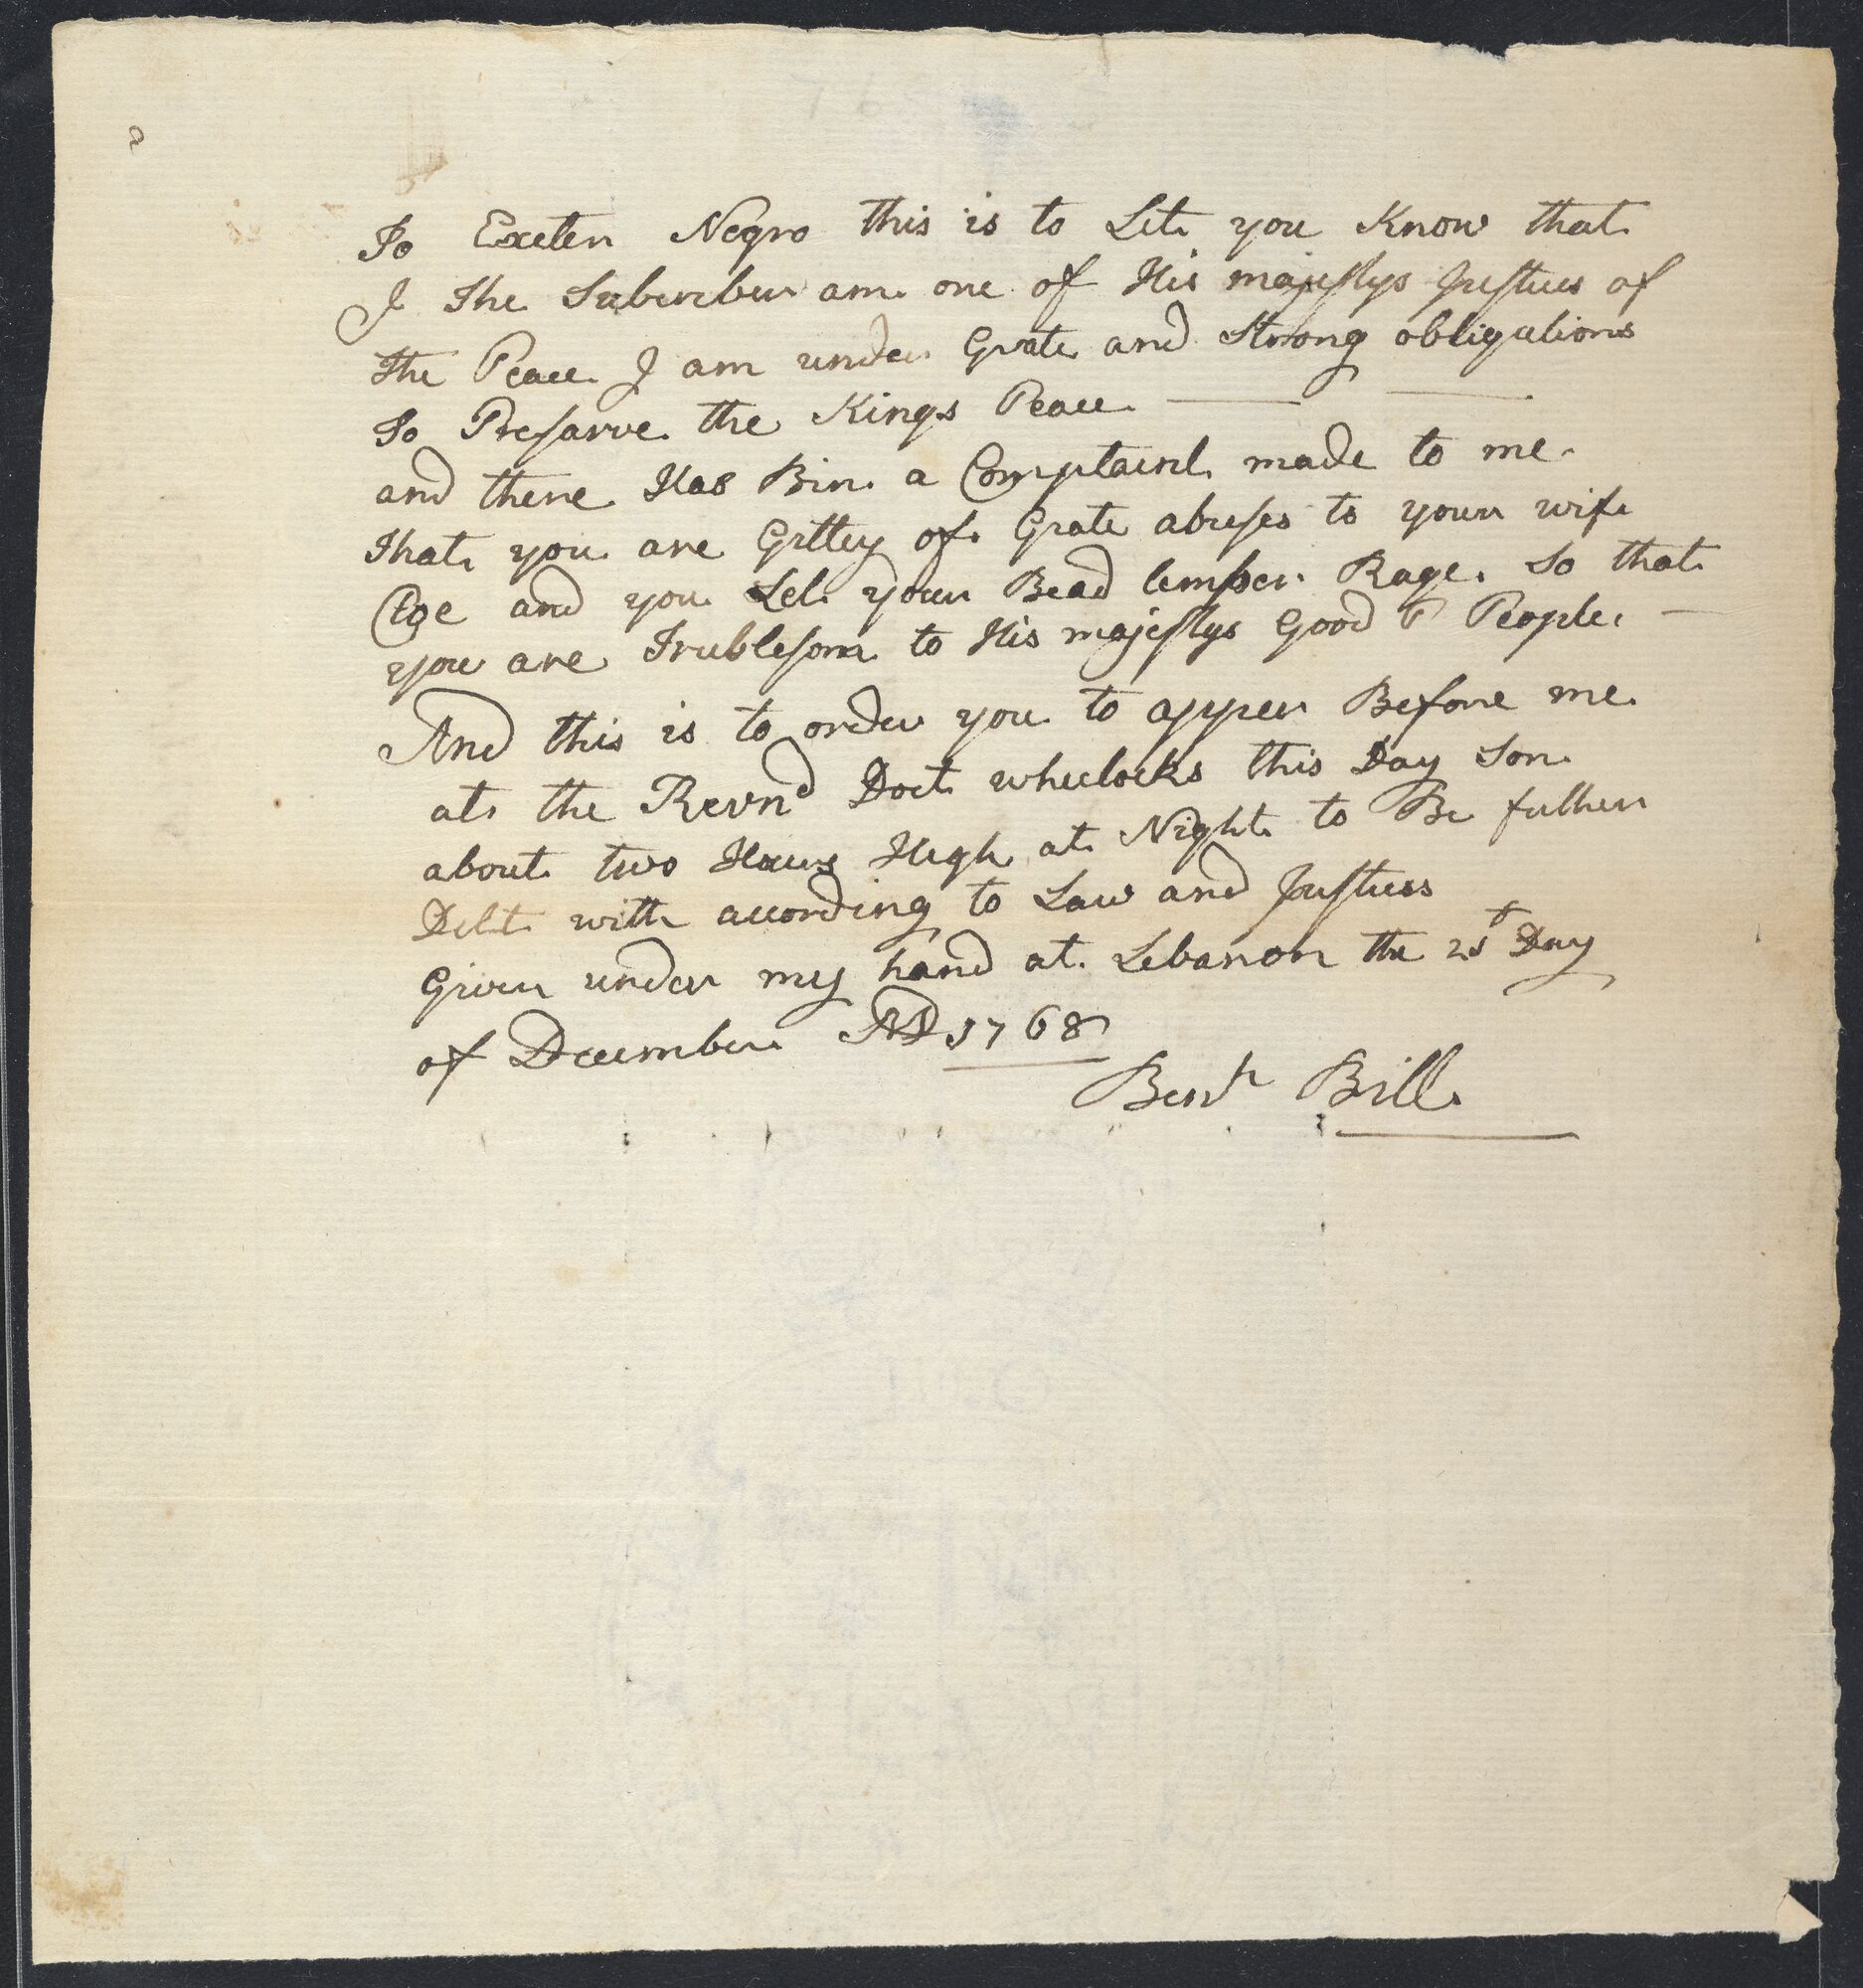 To Exeter Negro this is to Let you Know that
I The Subcriber am one of His majestys Justices of
The Peace I am under Grate and Strong obligations
To Presarve the Kings Peace
and there Has Bin a Complaint made to me
That you are Giltey of Grate abuses to your wife
Cloe and you Let your Bead temper Rage So that
you are Trublesom to His majestys Good P People
And this is to order you to apper Before me
at the Revnd Doct wheelocks this Day Son
about two Hours High at Night to Be futher
Delt with according to Law and Justuss
Given under my hand at Lebanon the Day
of December AD 1768
Benjn Bill